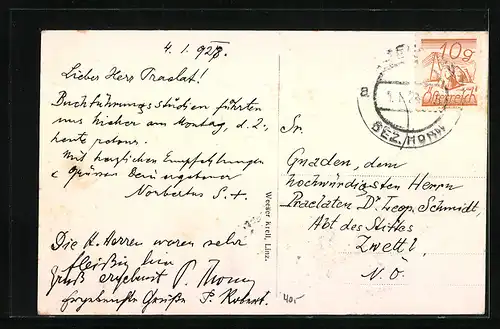 4. 1. 1928
Lieber Herr Praelat!
Buchführungsstudien führten
uns hieher am Montag, d. 2.,
heute
Mit herzlichen Empfehlungen
u Grüssen Dein ergebener
Norbertus
Die H. Herren waren sehr
fleißig
Gruß ergebenst P.
Ergebenste Grüße P. Robert.
Weeser Krell, Linz.
40,-
10g
Österreich
a
BEZ. HORN
Sr.
Gnaden, dem
hochwürdigsten Herrn
Praelaten Dr Leop. Schmidt,
Abt des Stiftes
Zwettl,
N. Ö.